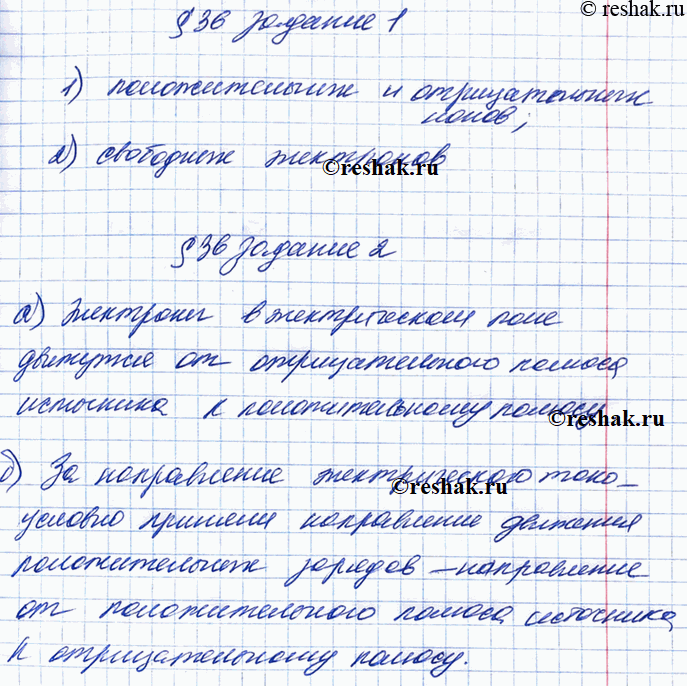 © reshak.ru
§36 Задание 1
1) положительных и отрицательных
ионов;
2) свободных электронов
©reshak.ru
§36 Задание 2
а) Электроны в электрическом поле
движутся от отрицательного полюса
источника к положительному полюсу
©reshak.ru
б) За направление электрического тока
©reshak.ru
условно приняли направление движения
положительных зарядов – направление
от положительного полюса источника
к отрицательному полюсу.